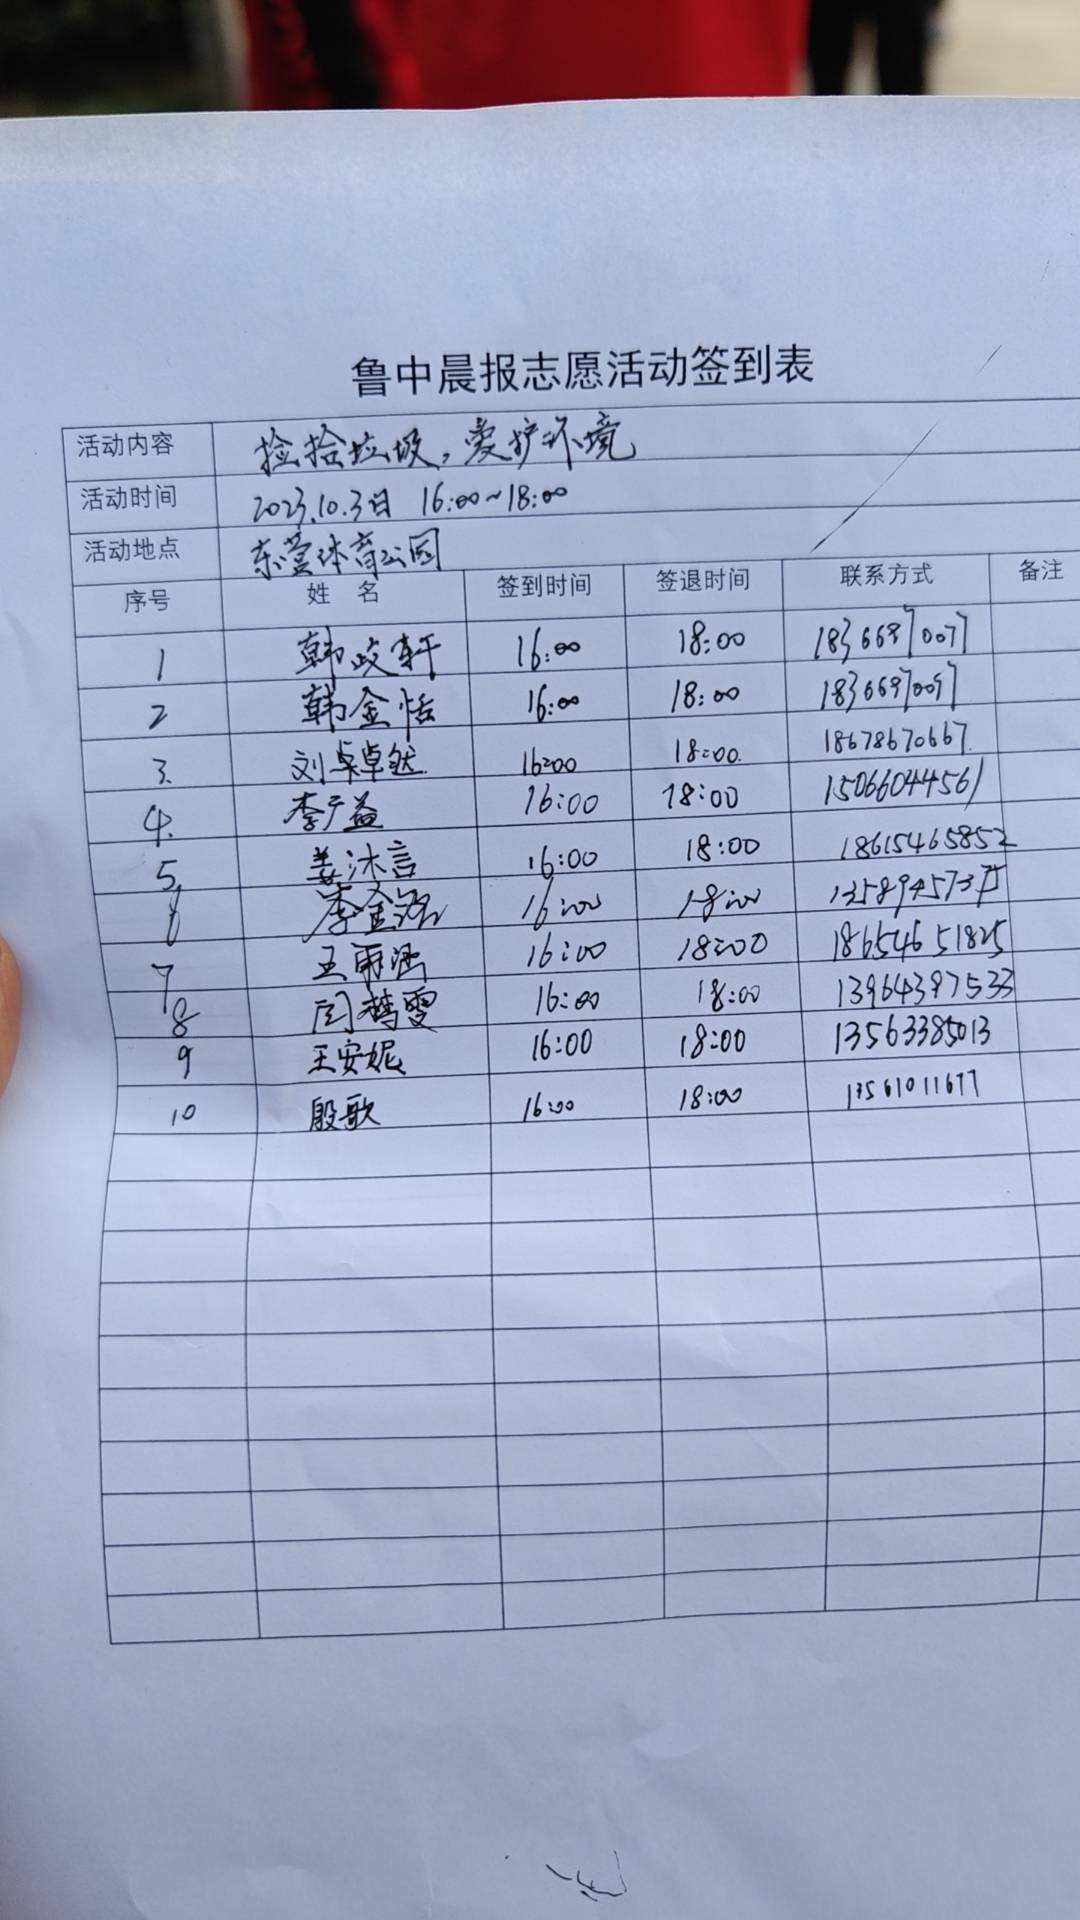 鲁中晨报志愿活动签到表
活动内容 捡拾垃圾，爱护环境
活动时间 2023.10.3日 16:00~18:00
活动地点 东营体育公园
序号 姓名 签到时间 签退时间 联系方式 备注
1 韩政轩 16:00 18:00
2 韩金恬 16:00 18:00
3. 刘卓卓然 16:00 18:00. 18678670667.
4. 李广益 16:00 18:00 15066044561
5, 姜沐言 16:00 18:00 18615465852
6 李金 16:00 18:00
7 王雨涵 16:00 18:00 18654651825
8 闫梦雯 16:00 18:00 13964397533
9 王安妮 16:00 18:00 13563385013
10 殷歌 16:00 18:00 13561011677